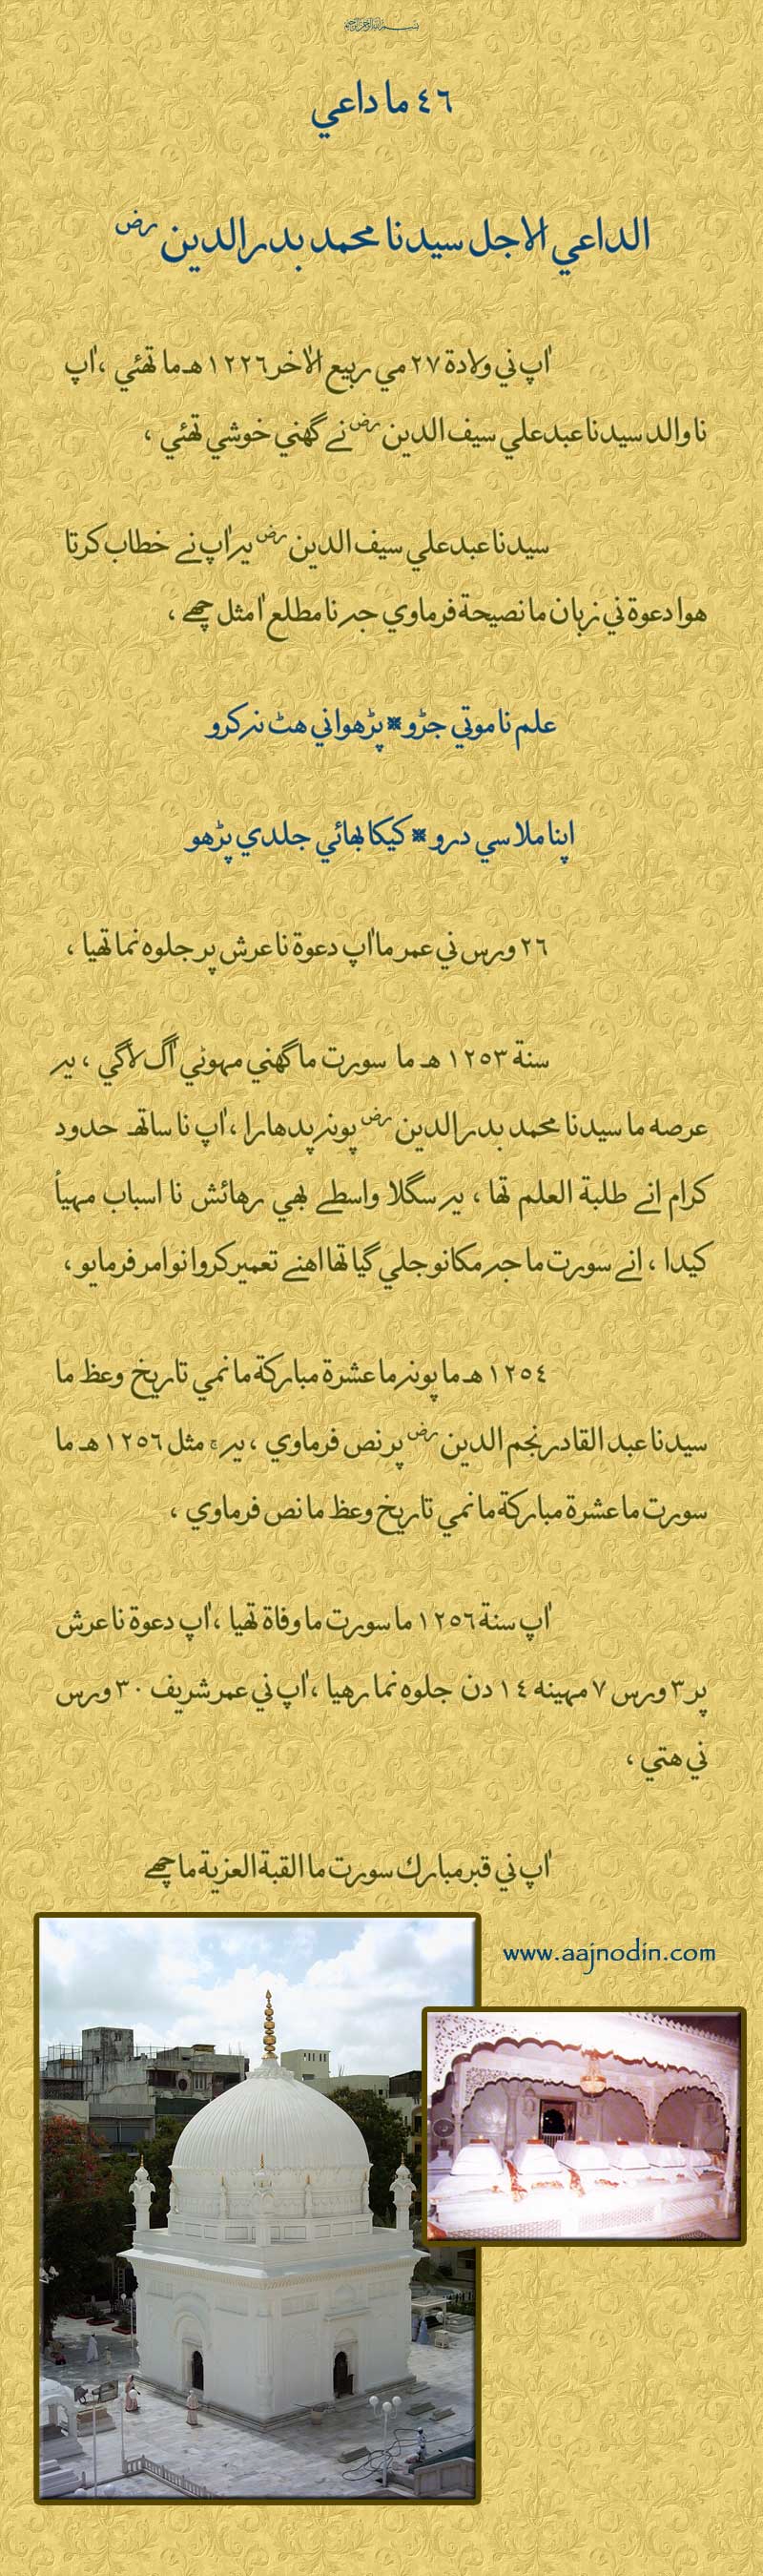 بسم الله الرحمن الرحيم
٤٦ ما داعي
الداعي الاجل سيدنا محمد بدر الدين رض
اٰپ ني ولادة ٢٧ مي ربيع الاٰخر ١٢٢٦ هـ ما تهئي ، اٰپ
نا والد سيدنا عبد علي سيف الدين رض نے گهني خوشي تهئي ،
سيدنا عبد علي سيف الدين رض يہ اٰپ نے خطاب كرتا
هوا دعوة ني زبان ما نصيحة فرماوي جہ نا مطلع اٰ مثل چھے ،
علم نا موتي جڑو ※ پڑهواني هٹ نہ كرو
اپنا ملا سي درو ※ كيكا بهائي جلدي پڑهو
٢٦ ورس ني عمر ما اٰپ دعوة نا عرش پر جلوه نما تهيا ،
سنة ١٢٥٣ هـ ما سورت ما گهني مهوٹي اٰگ لاگي ، يہ
عرصه ما سيدنا محمد بدر الدين رض پونہ پدهارا ، اٰپ نا ساتھ حدود
كرام انے طلبة العلم تها ، يہ سگلا واسطے بهي رهائش نا اسباب مهيأ
كيدا ، انے سورت ما جہ مكانو جلي گيا تها اهنے تعمير كروانو امر فرمايو ،
١٢٥٤ هـ ما پونہ ما عشرة مباركة ما نمي تاريخ وعظ ما
سيدنا عبد القادر نجم الدين رض پر نص فرماوي ، يہ ج مثل ١٢٥٦ هـ ما
سورت ما عشرة مباركة ما نمي تاريخ وعظ ما نص فرماوي ،
اٰپ سنة ١٢٥٦ ما سورت ما وفاة تهيا ، اٰپ دعوة نا عرش
پر ٣ ورس ٧ مهينه ١٤ دن جلوه نما رهيا ، اٰپ ني عمر شريف ٣٠ ورس
ني هتي ،
اٰپ ني قبر مبارك سورت ما القبة العزية ما چھے
www.aajnodin.com